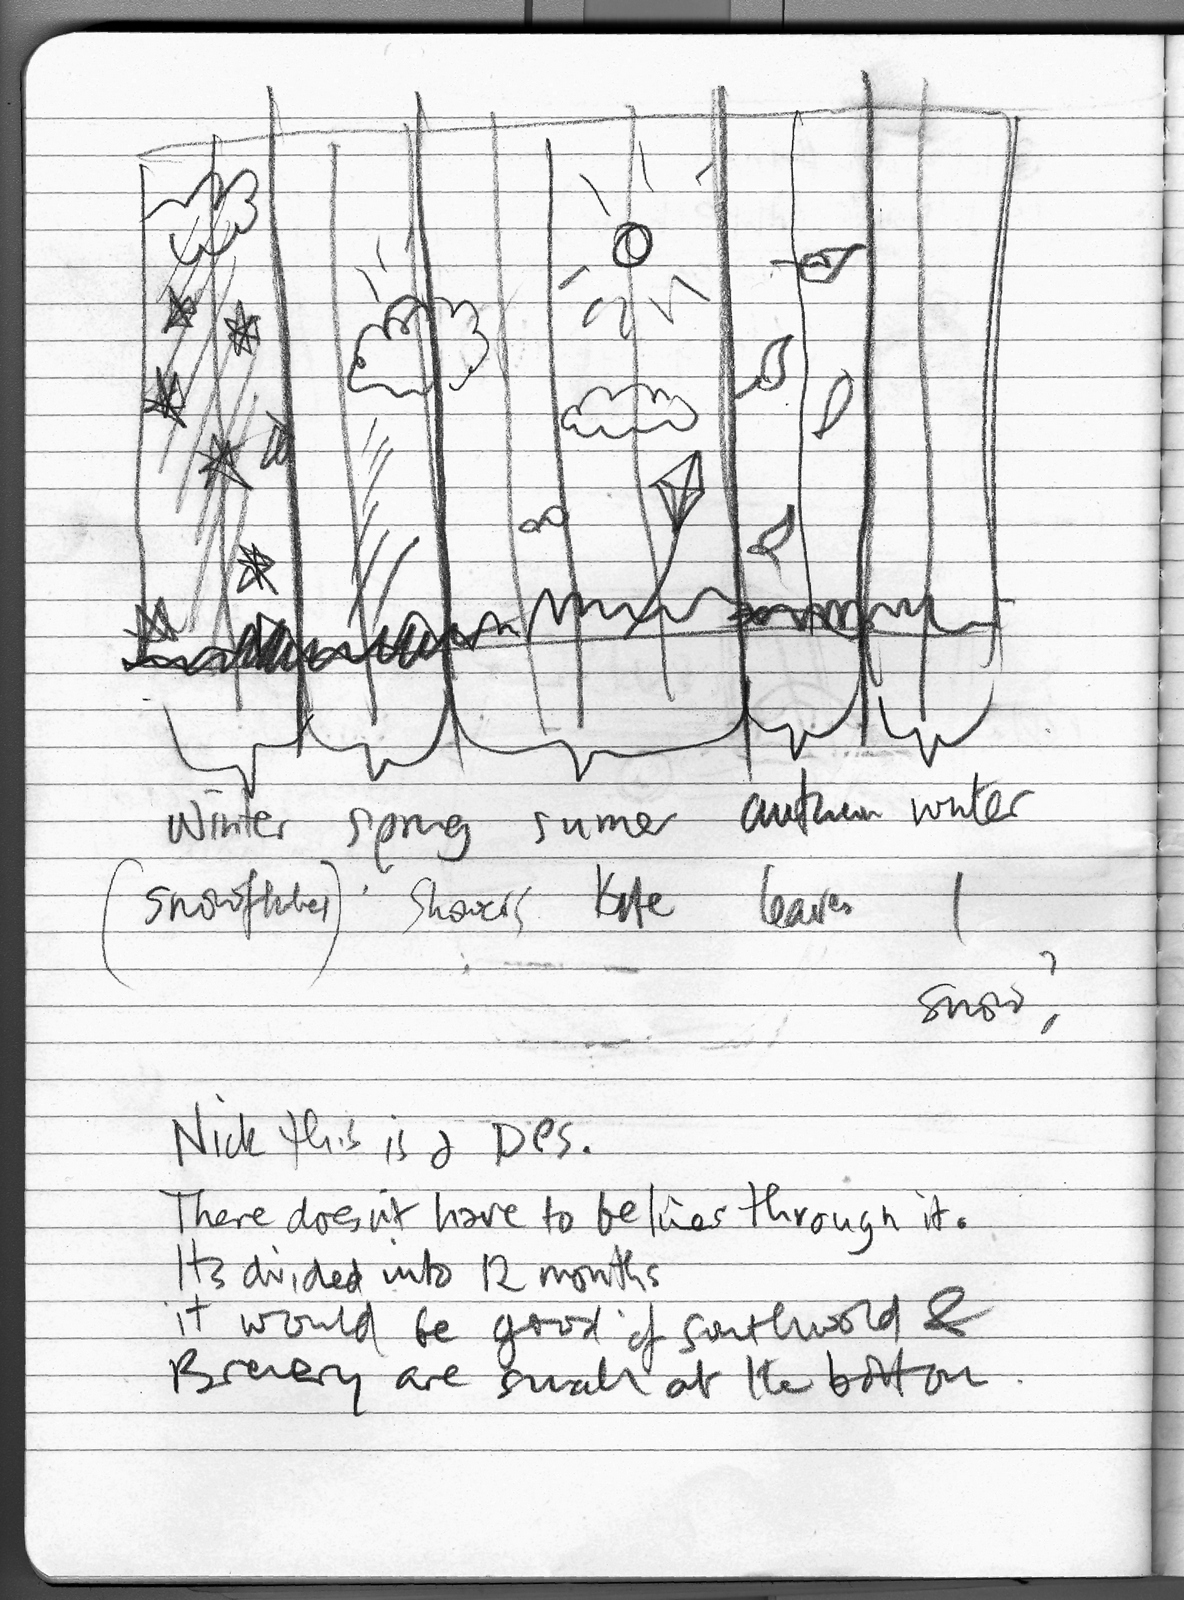 winter spring summer autumn winter
(snowflakes) showers kite leaves
snow?
Nick this is a DPS.
There doesn't have to be lines through it.
Its divided into 12 months
it would be good if southwold &
Brewery are small at the bottom.